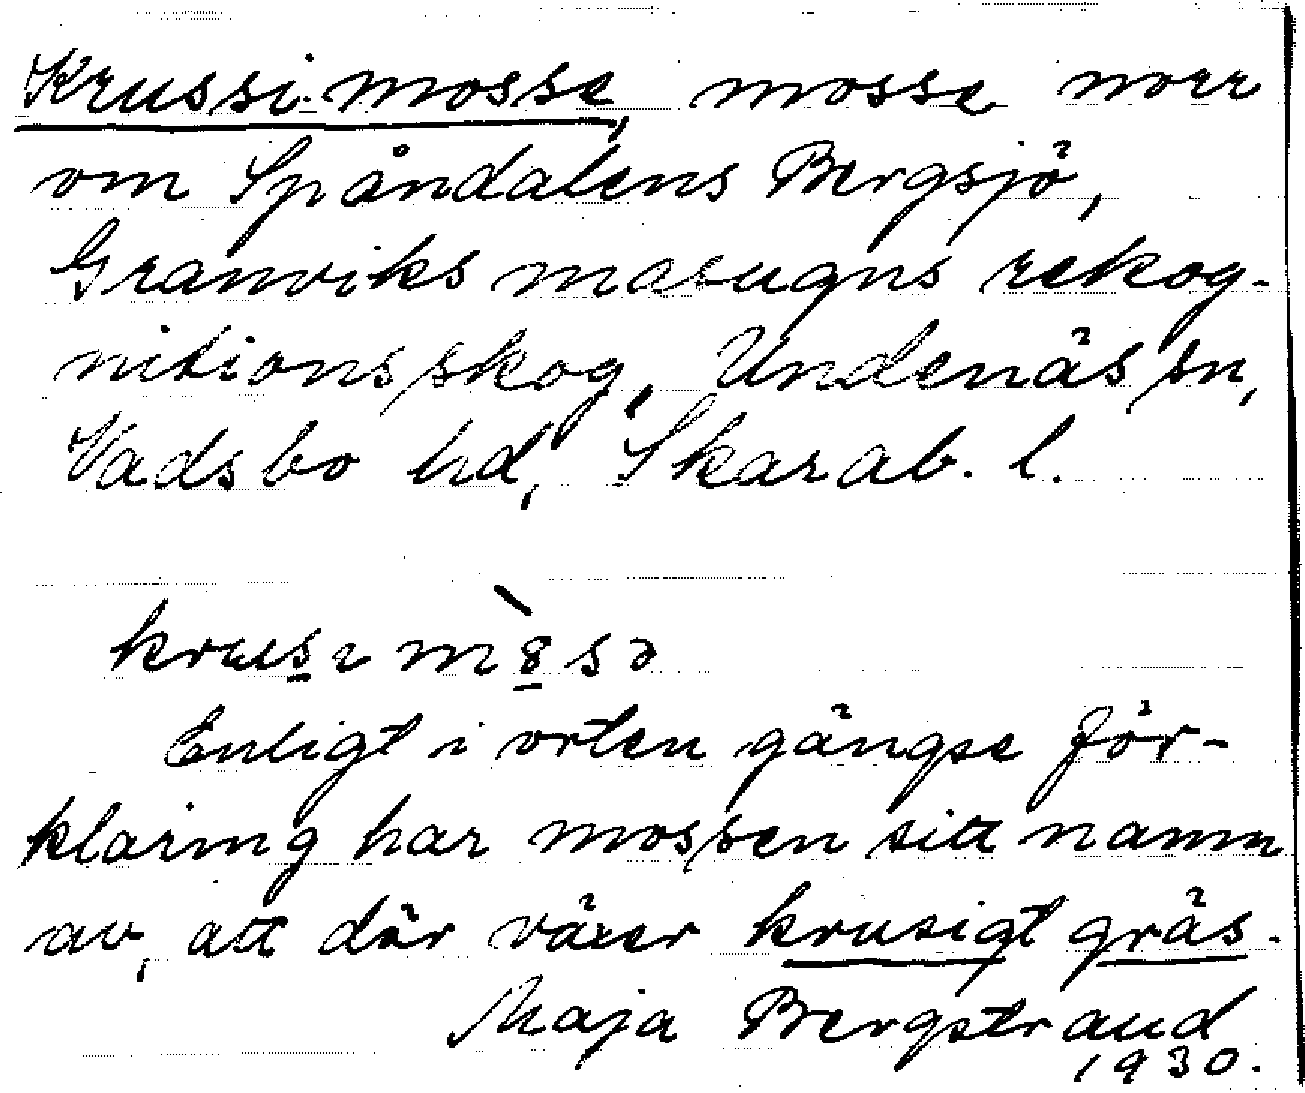 Krussi-mosse, mosse norr
om Spåndalens Bergsjö,
Granviks masugns rekog-
nitionsskog, Undenäs sn,
Vadsbo hd, Skarab. l.
Enligt i orten gängse för-
klaring har mossen sitt namn
av, att där växer krusigt gräs.
Maja Bergstrand
1930.